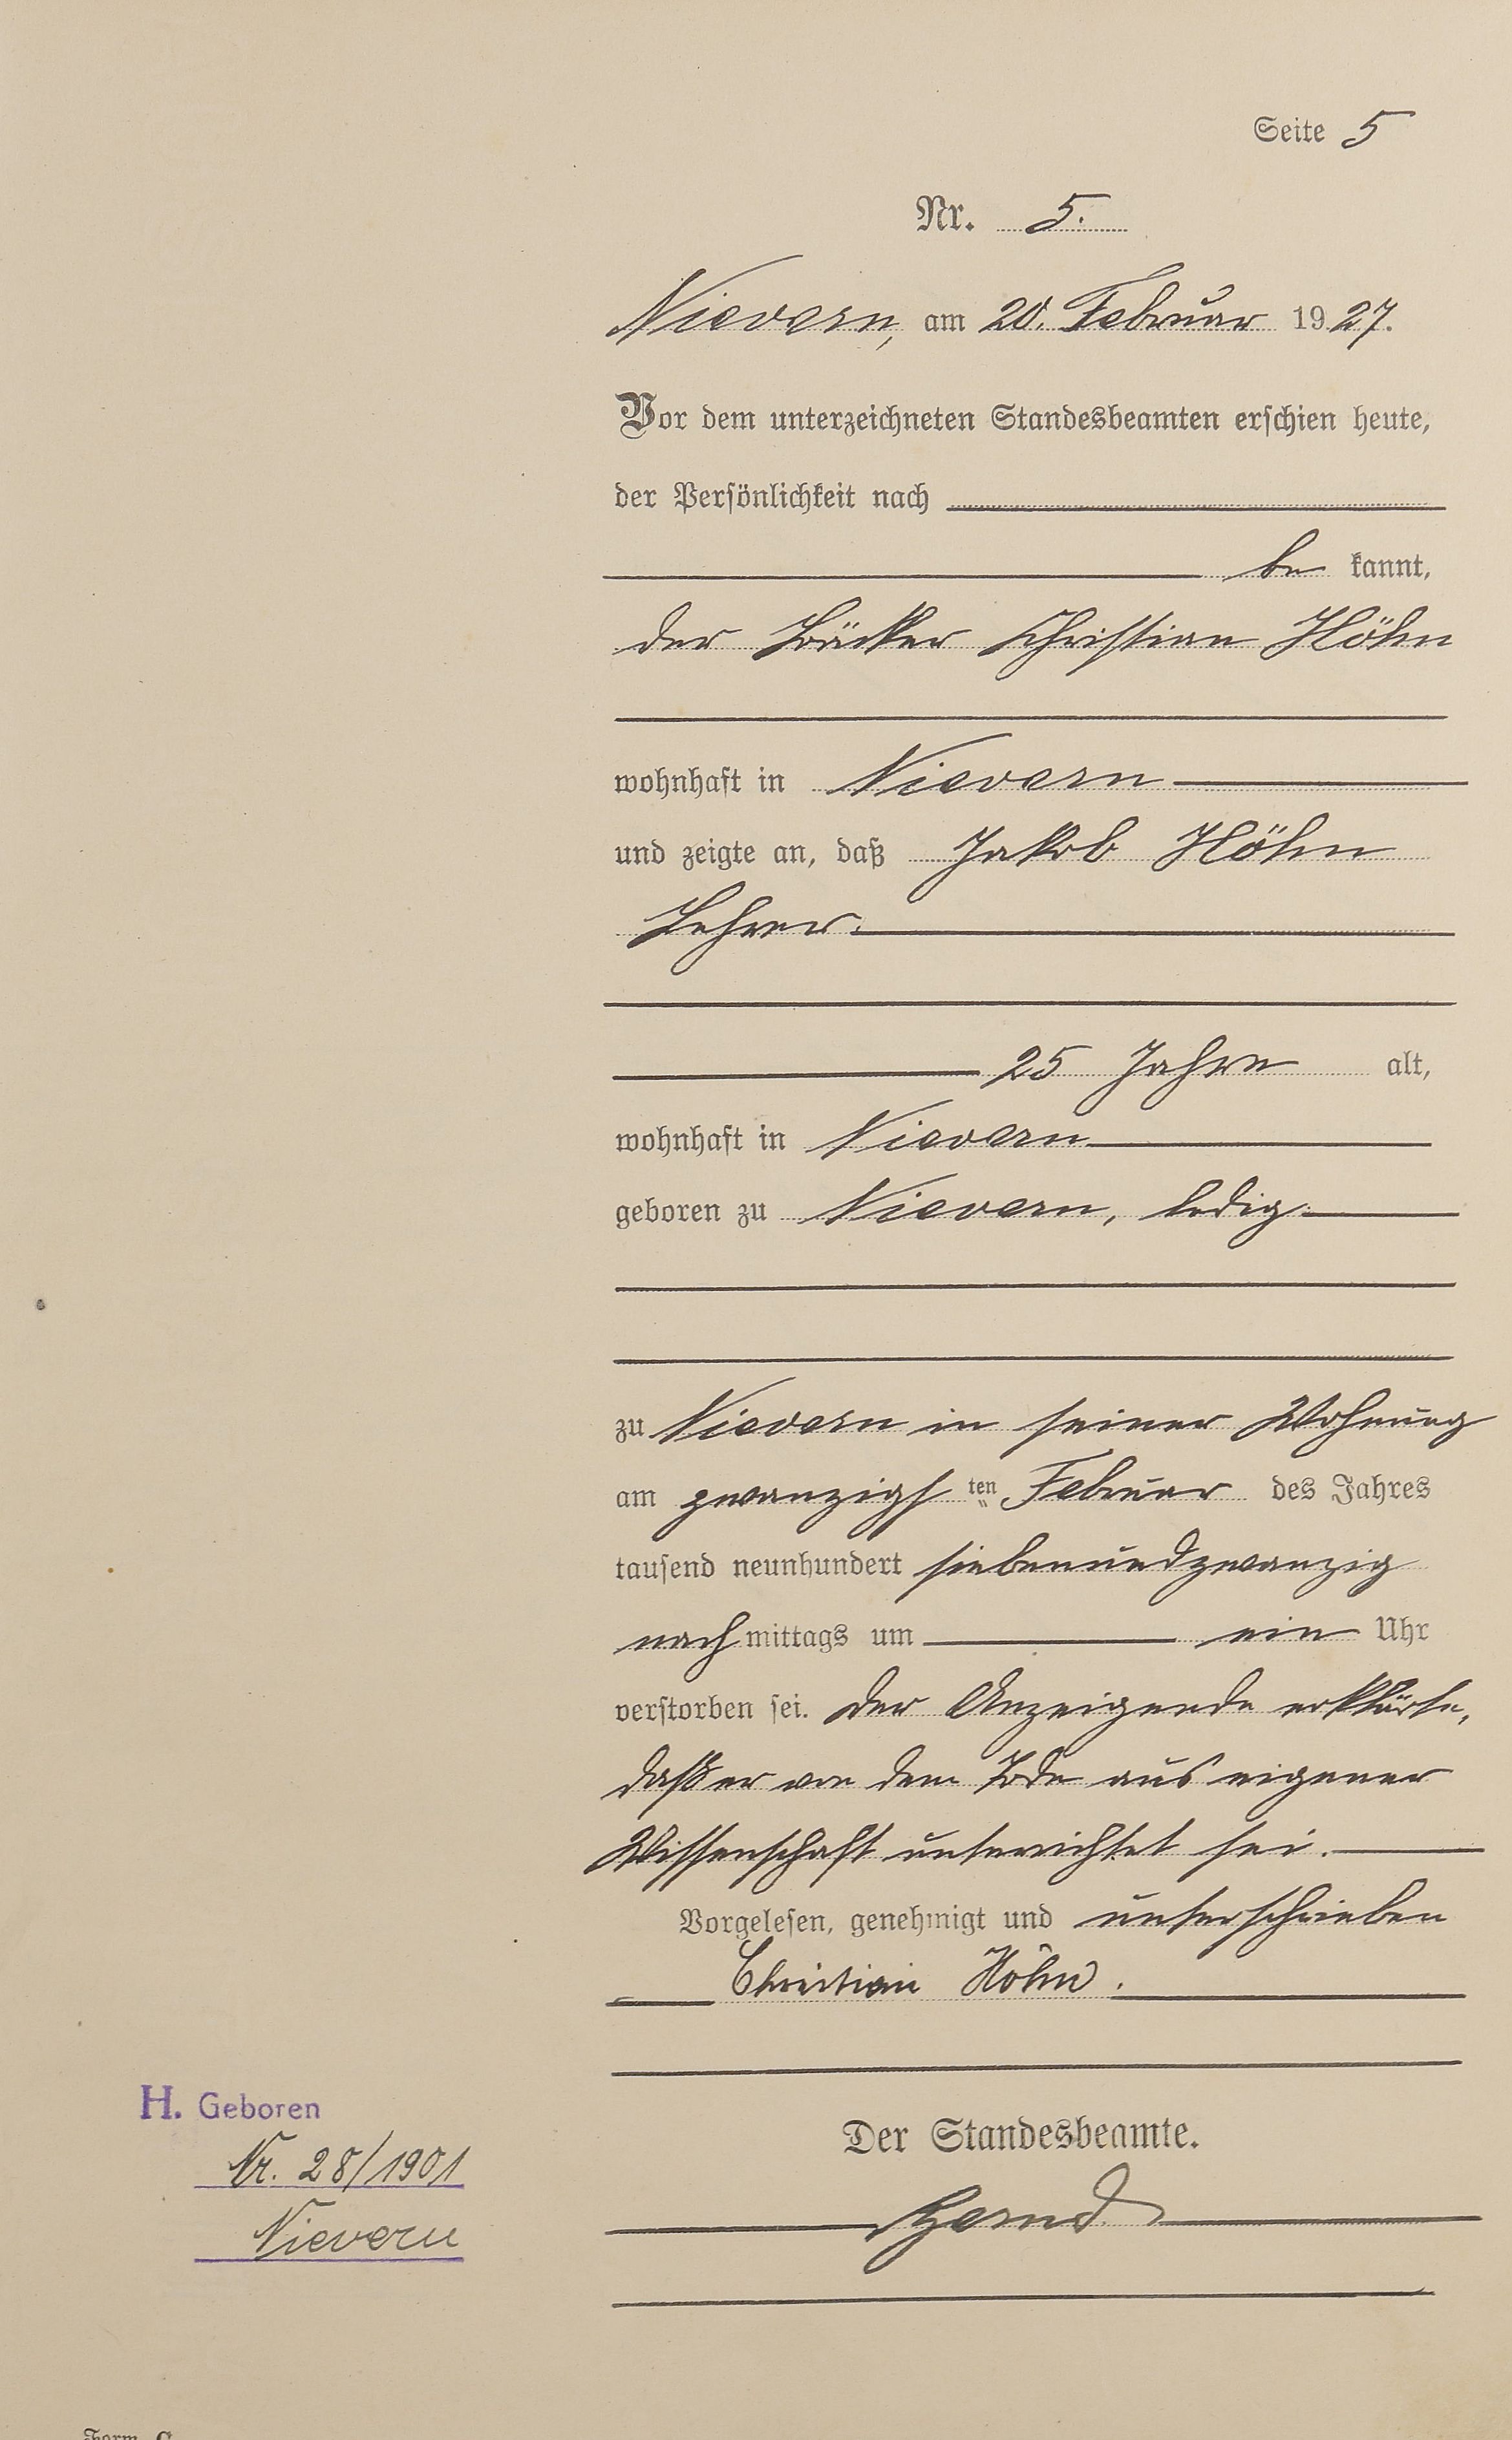 Seite 5
Nr. 5.
Nievern, am 20. Februar 1927.
Vor dem unterzeichneten Standesbeamten erschien heute,
der Persönlichkeit nach
be kannt,
der Bäcker Christian Höhn
wohnhaft in Nievern
und zeigte an, daß Jakob Höhn
Lehrer.
25 Jahre alt,
wohnhaft in Nievern
geboren zu Nievern, ledig.
zu Nievern in seiner Wohnung
am zwanzigsten Februar des Jahres
tausend neunhundert siebenundzwanzig
nachmittags um ein Uhr
verstorben sei. Der Anzeigende erklärte,
daß er von dem Tode aus eigener
Wissenschaft unterrichtet sei.
Vorgelesen, genehmigt und unterschrieben
Christian Höhn.
Der Standesbeamte.
H. Geboren
Nr. 28/1901
Nievern
Form. C